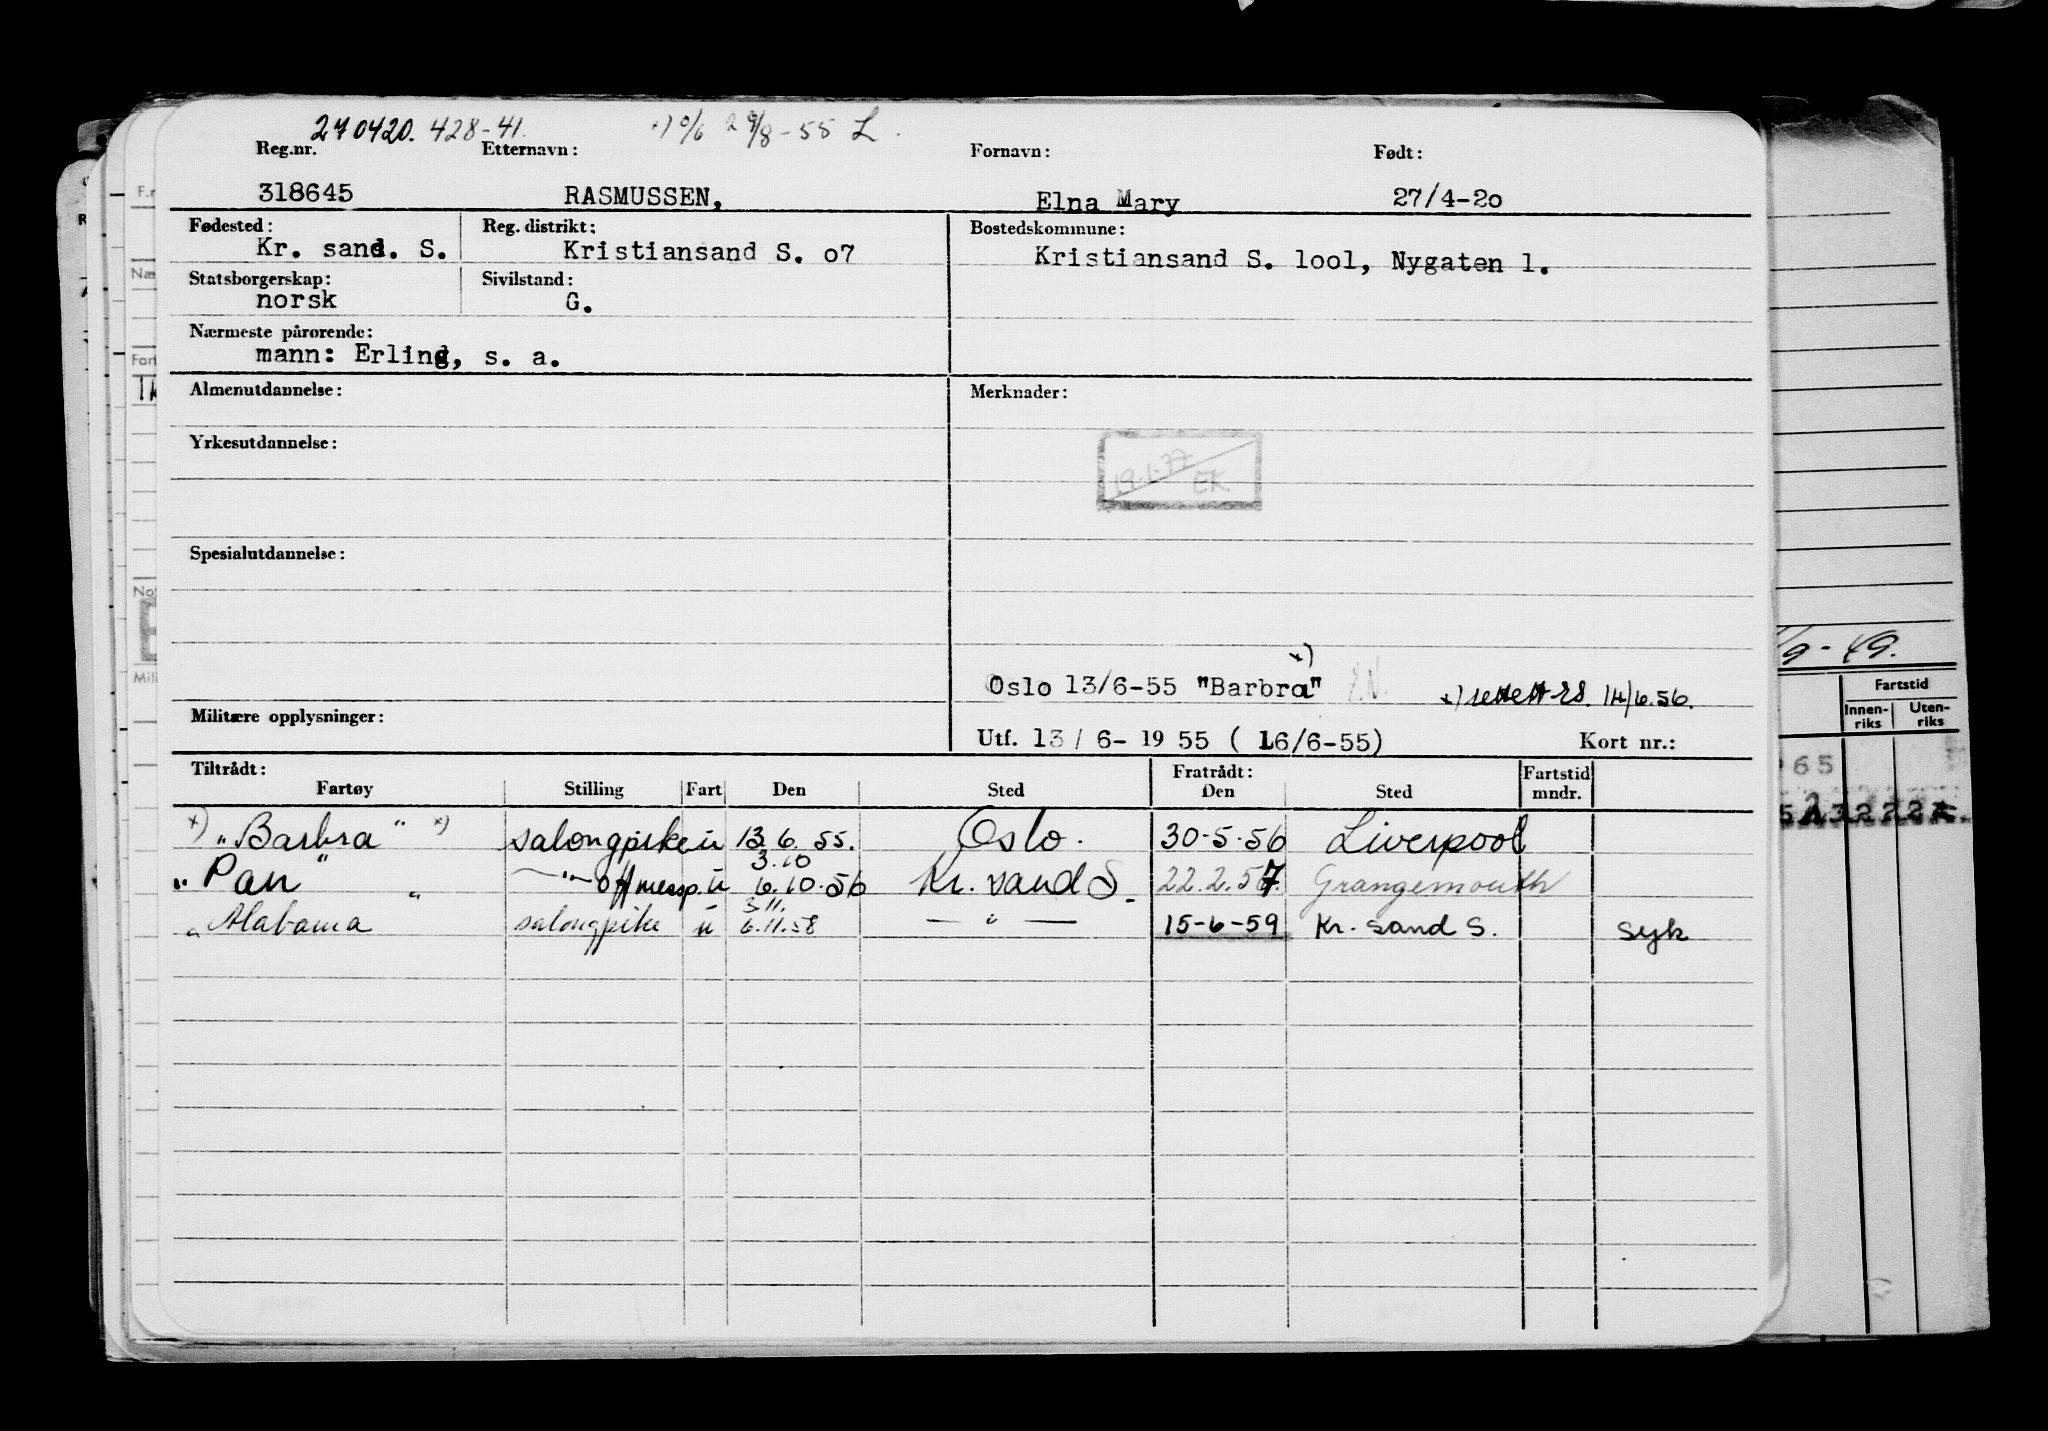 270420. 428-41. x) 0/6 29/8-55 L.
Reg.nr. Etternavn: Fornavn: Født:
318645 RASMUSSEN, Elna Mary 27/4-2o
Fødested: Reg. distrikt: Bostedskommune:
Kr. sand. S. Kristiansand S. o7 Kristiansand S. lool, Nygaten 1.
Statsborgerskap: Sivilstand:
norsk G.
Nærmeste pårørende:
mann: Erling, s. a.
Almenutdannelse: Merknader:
Yrkesutdannelse:
19.1.77 EK
Spesialutdannelse:
x)
Oslo 13/6-55 "Barbra" x) rettett RS. 14/6.56.
Militære opplysninger:
Utf. 13/6-1955 (16/6-55) Kort nr.:
Tiltrådt: Fratrådt: Fartstid
Fartøy Stilling Fart Den Sted Den Sted mndr.
x) "Barbra" x) salongpike u 13.6.55. Oslo. 30-5-56 Liverpool
3.10
"Pan" —"— offmessp. u 6.10.56 Kr. sand S. 22.2.57. Grangemouth
3.11.
"Alabama" salongpike u 6.11.58 —"— 15-6-59 Kr. sand S. syk
/9-49.
Fartstid
Innen-riks Uten-riks
65